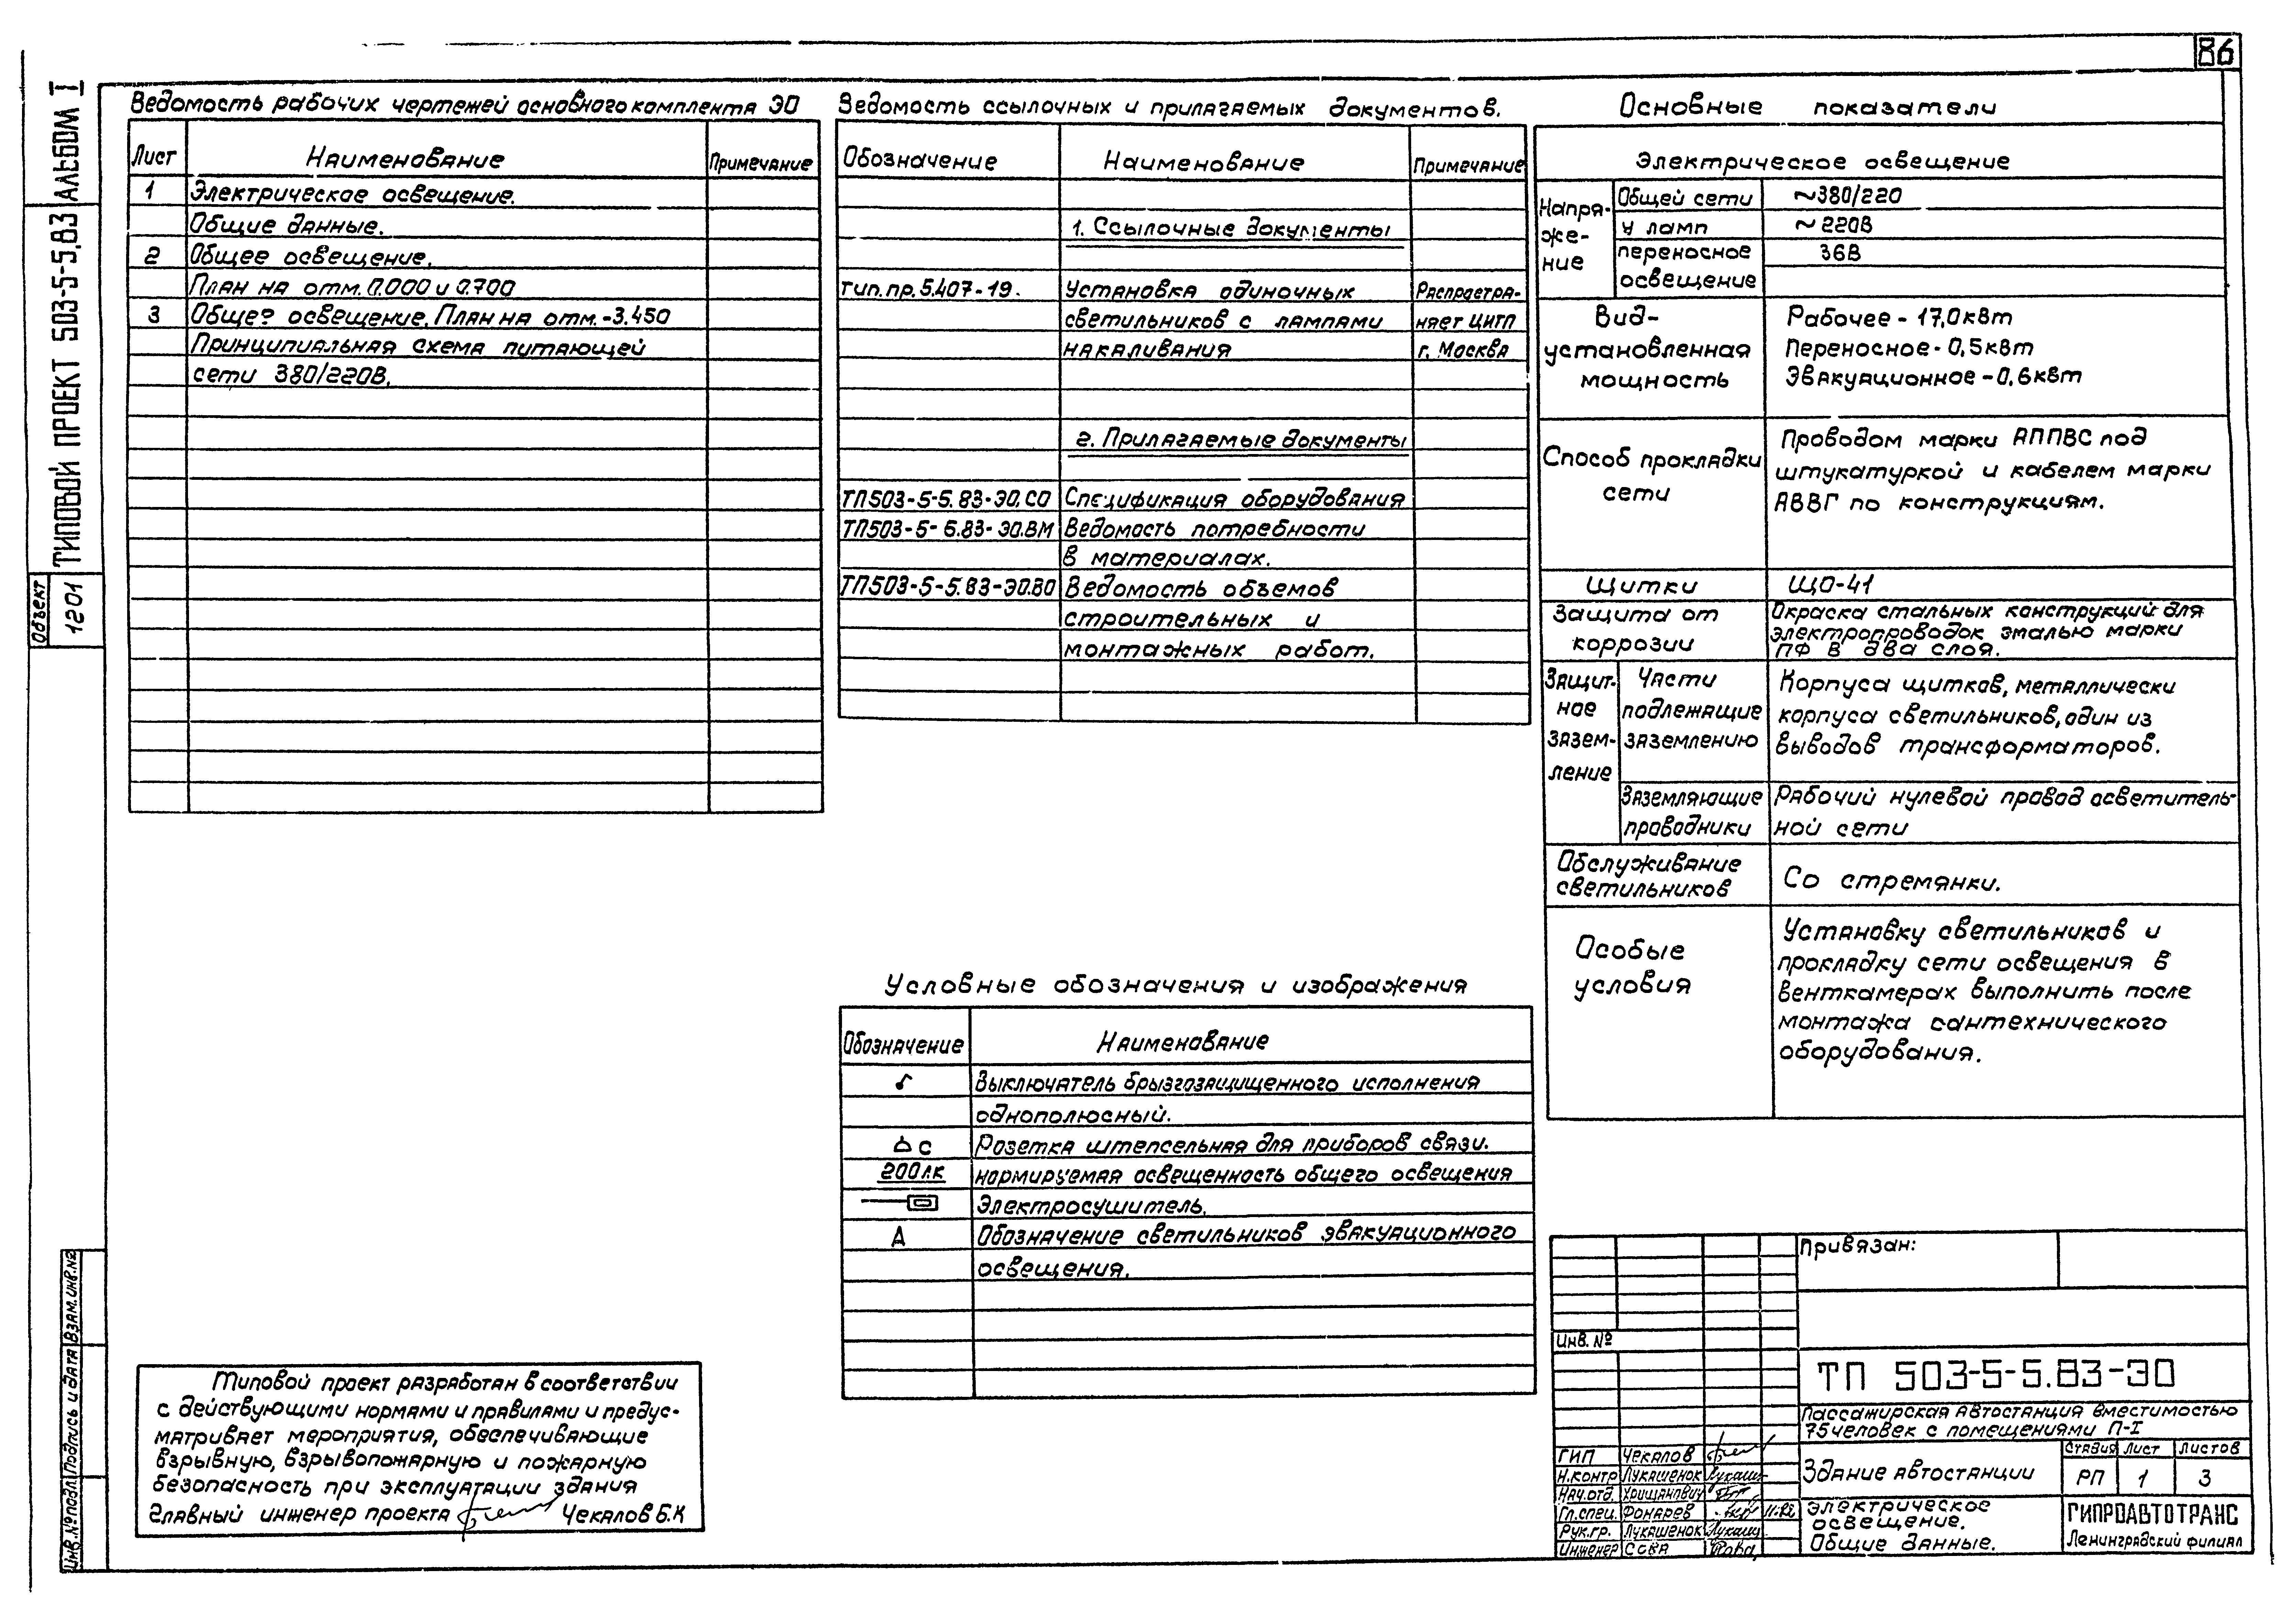 86
АЛЬБОМ I
ТИПОВОЙ ПРОЕКТ 503-5-5.83
Объект
1201
Взам.инв.№
Подпись и дата
Инв.№подл.
Ведомость рабочих чертежей основного комплекта ЭО
Лист Наименование Примечание
1 Электрическое освещение.
Общие данные.
2 Общее освещение.
План на отм. 0.000 и 0.700
3 Обще? освещение. План на отм.-3.450
Принципиальная схема питающей
сети 380/220В.
Ведомость ссылочных и прилагаемых документов.
Обозначение Наименование Примечание
1. Ссылочные документы
тип.пр. 5.407-19. Установка одиночных Распростра-
светильников с лампами няет ЦИТП
накаливания г. Москва
2. Прилагаемые документы
ТП503-5-5.83-ЭО.СО Спецификация оборудования
ТП503-5-5.83-ЭО.ВМ Ведомость потребности
в материалах.
ТП503-5-5.83-ЭО.ВО Ведомость объемов
строительных и
монтажных работ.
Основные показатели
Электрическое освещение
Напря-
же-
ние
Общей сети ~380/220
у ламп ~220В
переносное 36В
освещение
Вид-
установленная
мощность
Рабочее - 17,0кВт
Переносное - 0,5кВт
Эвакуационное - 0,6кВт
Способ прокладки
сети
Проводом марки АППВС под
штукатуркой и кабелем марки
АВВГ по конструкциям.
Щитки ЩО-41
Защита от
коррозии
Окраска стальных конструкций для
электропроводок эмалью марки
ПФ в два слоя.
Защит-
ное
зазем-
ление
Части
подлежащие
заземлению
Корпуса щитков, металлически
корпуса светильников, один из
выводов трансформаторов.
Заземляющие
проводники
Рабочий нулевой провод осветитель-
ной сети
Обслуживание
светильников
Со стремянки.
Особые
условия
Установку светильников и
прокладку сети освещения в
венткамерах выполнить после
монтажа сантехнического
оборудования.
Условные обозначения и изображения
Обозначение Наименование
Выключатель брызгозащищенного исполнения
однополюсный.
С Розетка штепсельная для приборов связи.
200лк нормируемая освещенность общего освещения
Электросушитель.
А Обозначение светильников эвакуационного
освещения.
Типовой проект разработан в соответствии
с действующими нормами и правилами и предус-
матривает мероприятия, обеспечивающие
взрывную, взрывопожарную и пожарную
безопасность при эксплуатации здания
Главный инженер проекта Чекалов Б.К
Привязан:
Инв. №
ТП 503-5-5.83-ЭО
Пассажирская автостанция вместимостью
75 человек с помещениями П-I
ГИП Чекалов
Н.контр Лукашенок
Нач.отд. Хрищанович
Гл.спец. Фонарев
Рук.гр. Лукашенок
Инженер
Здание автостанции
Стадия Лист Листов
РП 1 3
Электрическое
освещение.
Общие данные.
ГИПРОАВТОТРАНС
Ленинградский филиал